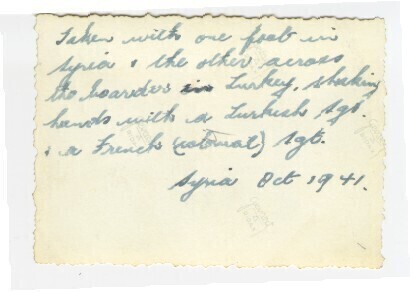 Taken with one foot in
Syria & the other across
the boarder in Turkey, shaking
hands with a Turkish Sgt.
& a French (colonial) Sgt.
Syria Oct 1941.